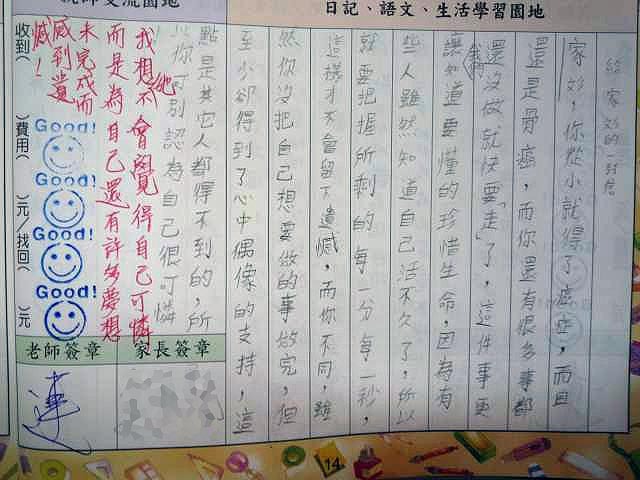 日記、語文、生活學習園地
給家妙的一封信
家妙，你從小就得了癌症，而且
還是骨癌，而你還有很多事都
還沒做就快要「走」了，這件事更
讓我們知道要懂的珍惜生命，因為有
些人雖然知道自己活不久了，所以
就要把握所剩的每一分每一秒，
這樣才不會留下遺憾，而你不同，雖
然你沒把自己想要做的事做完，但
至少卻得到了心中偶像的支持，這
點是其它人都得不到的，所
以你可別認為自己很可憐
我想她不會覺得自己可憐
而是為自己還有許多夢想
未完成而
感到遺
憾！
親師交流園地
收到（ ）費用（ ）元／找回（ ）元
Good!
Good!
Good!
Good!
家長簽章
老師簽章
14